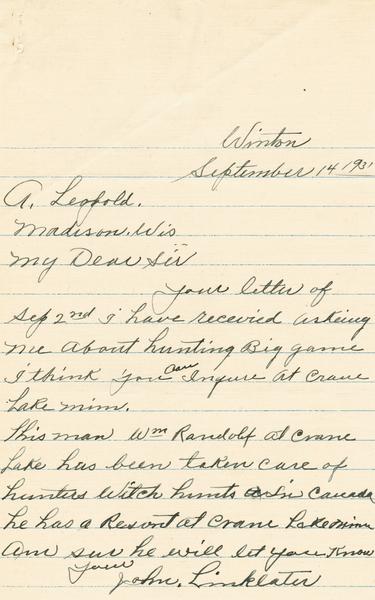 Winton
September 14 1931
A. Leopold.
Madison. Wis
My Dear Sir
Your letter of
Sep 2nd I have recevied askeing
me about hunting Big game
I think you can Inqure at Crane
Lake minn.
this man Wm Randolf at Crane
Lake has been taken care of
hunters witch hunts in Canada
he has a Resort at Crane Lake minn
Am sur he will let you. Know
Your
John. Linklater